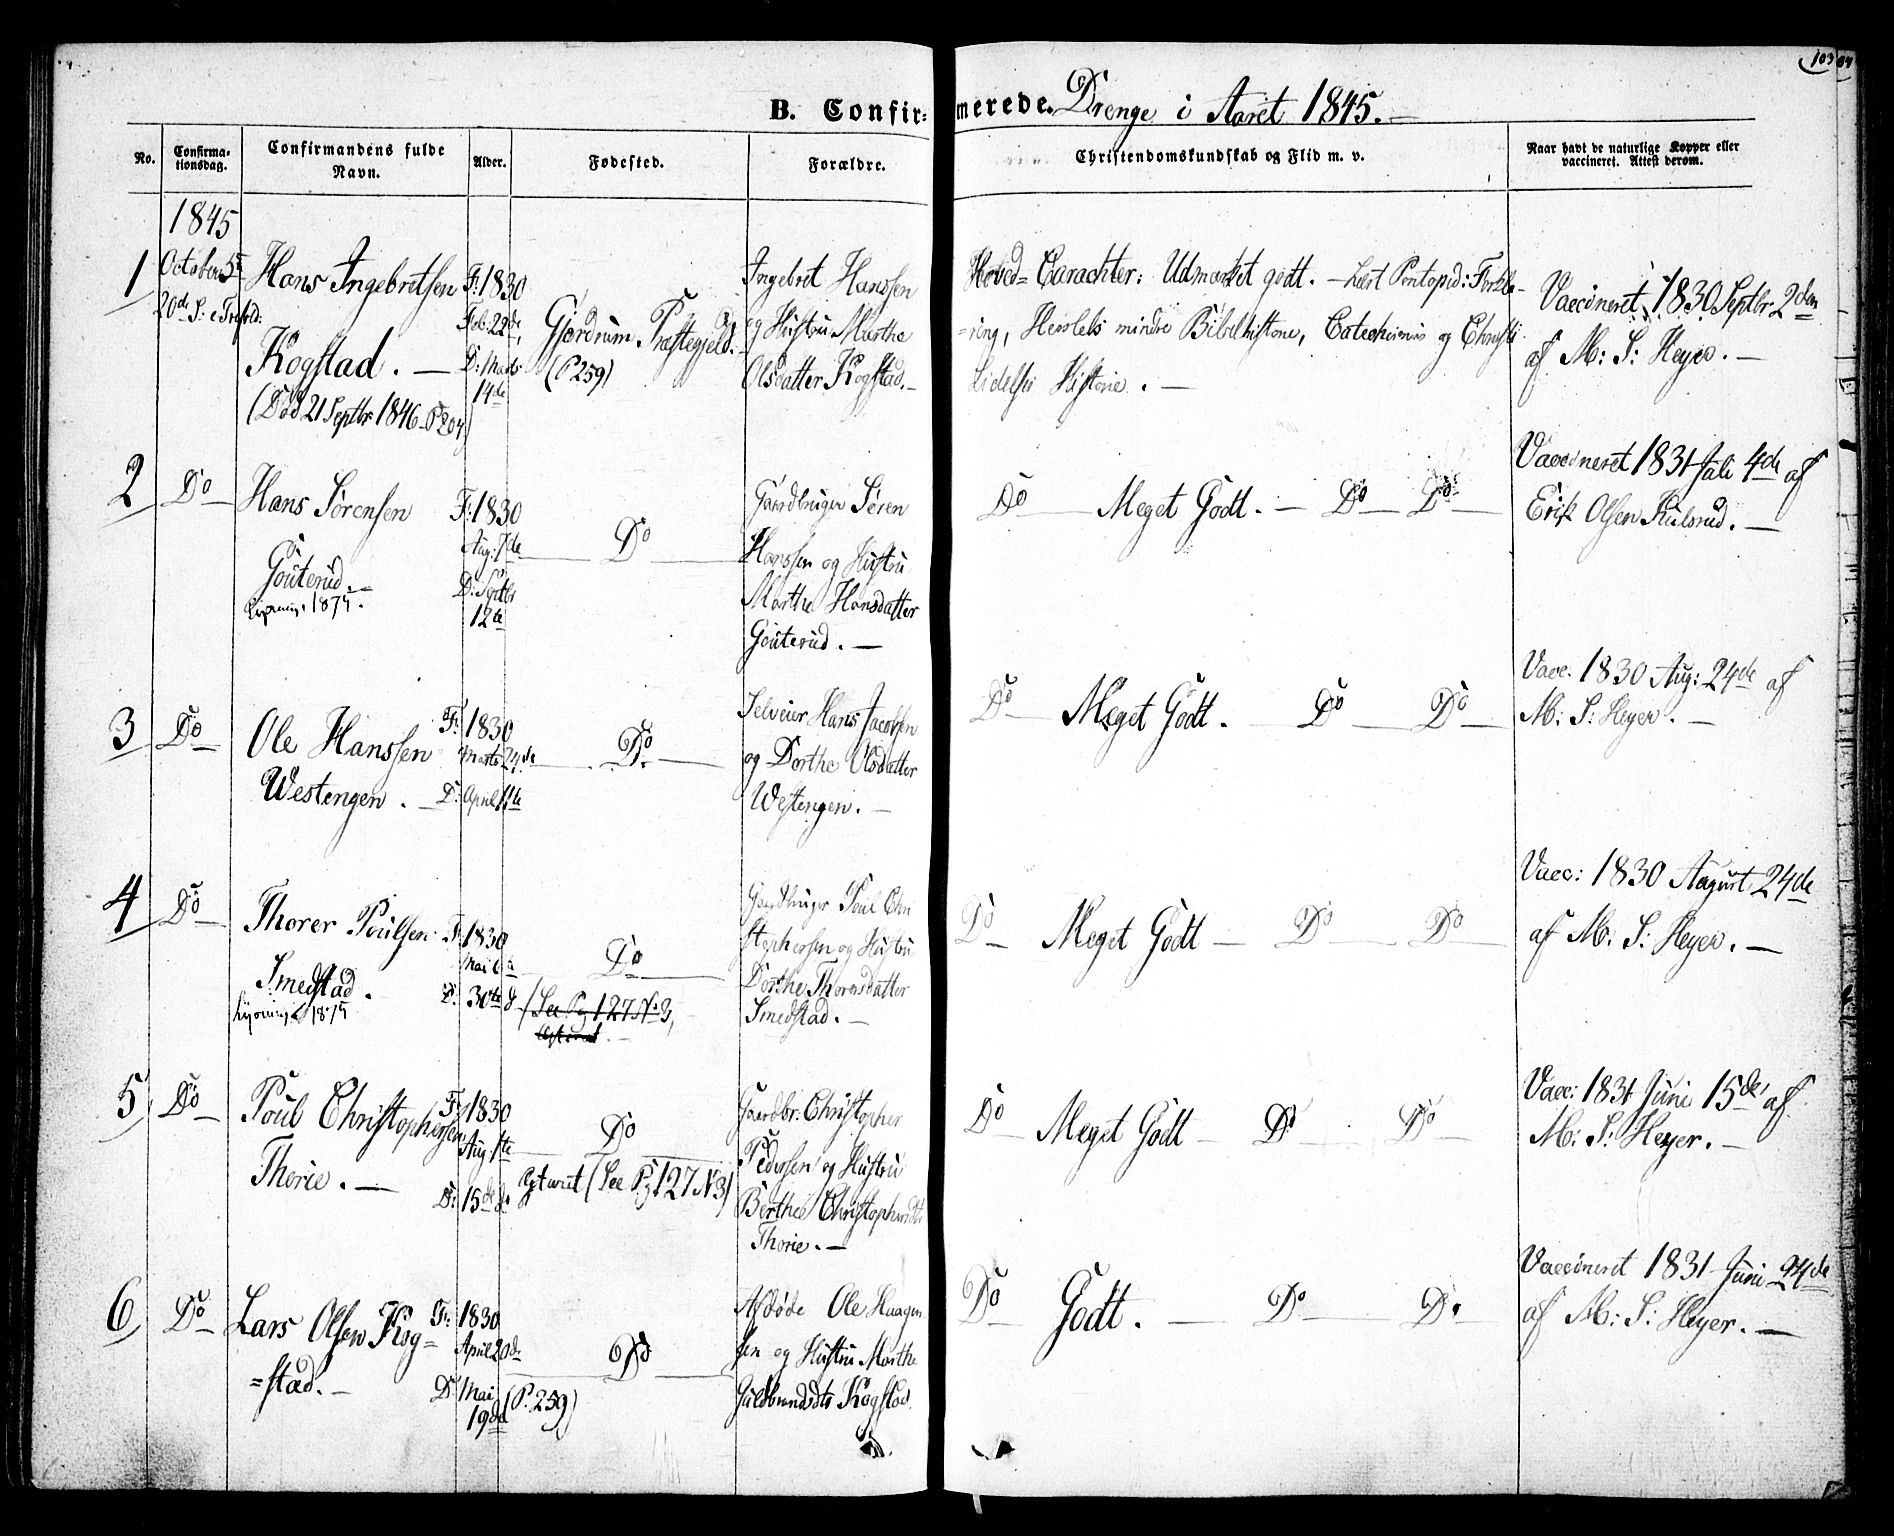 103
B. Confir=merede. Drenge i Aaret 1845.
No.
Confirma-
tionsdag.
Confirmandens fulde
Navn.
Alder.
Fødested.
Forældre.
Christendomskundskab og Flid m. v.
Naar havt de naturlige Kopper eller
vaccineret. Attest derom.
1845
1
October 5te
20d S: e Trefold:
Hans Ingebretsen
Kogstad. —
(Død 21 Septbr 1846 - P 204)
F: 1830
Feb: 22de,
D: Marts
14de
Gjerdrum Præstegjeld. -
(P 259)
Ingebret Hanssen
og Hustru Marthe
Olsdatter Kogstad. -
Hoved= Carachter: Udmærket godt. - Læst Pontopid: Forkla-
=ring, Herslebs mindre Bibelhistorie, Catechismus og Christi
Lidelses Historie. —
Vaccineret 1830 Septbr 2den
af M: S: Heyer. —
2
Do
Hans Sørensen
Gouterud. —
1875.
F: 1830
Aug: 7de
D: Septbr
12te
Do
Gaardbruger Søren
Hanssen og Hustru
Marthe Hansdatter
Gouterud. —
Do — Meget Godt. — Do — Do
Vaccineret 1831 Juli 4de af
Erik Olsen Kulsrud. —
3
Do
Ole Hanssen
Westengen. —
F: 1830
Marts 24de
D: April 11te
Do
Selveier Hans Jacobsen
og Dorthe Olsdatter
Westengen. —
Do — Meget Godt. — Do — Do
Vacc. 1830 Aug: 24de af
M: S: Heyer. —
4
Do
Thorer Poulsen
Smedstad.
1875
F: 1830
Mai 6te
D: 30te d
Do
(See Pg 127 No 3,
Gaardbruger Poul Chri
stophersen og Hustru
Dorthe Thorersdatter
Smedstad. —
Do — Meget Godt — Do — Do
Vacc: 1830 August 24de
af M: S: Heyer. —
5
Do
Poul Christophersen
Thorie. —
F: 1830
Aug 1te
D: 15de do
Do
(See Pg 127 N 3)
Gaardbr: Christopher
Pedersen og Hustru
Berthe Christophersdtr
Thorie. —
Do — Meget Godt — Do — Do
Vacc: 1831 Juni 15de af
M: S: Heyer. —
6
Do
Lars Olsen Kog=
=stad. —
F: 1830
April 20de
D: Mai
19de
Do
(P. 259)
Afdøde Ole Haagen
sen og Hustru Marthe
Guldbrandsdtr Kogstad.
Do — Godt. — Do — Do
Vaccineret 1831 Juni 24de
af M: S: Heyer. —